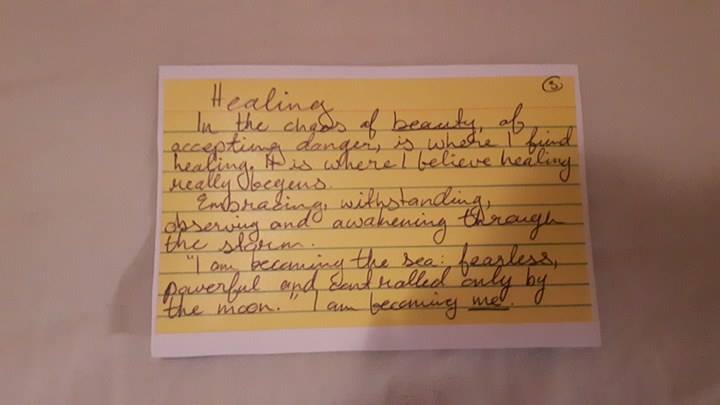 ③
Healing
In the chaos of beauty, of
accepting danger, is where I find
healing. It is where I believe healing
really begens.
Embracing, withstanding,
observing and awakening through
the storm.
"I am becoming the sea: fearless,
powerful and controlled only by
the moon." I am becoming me.